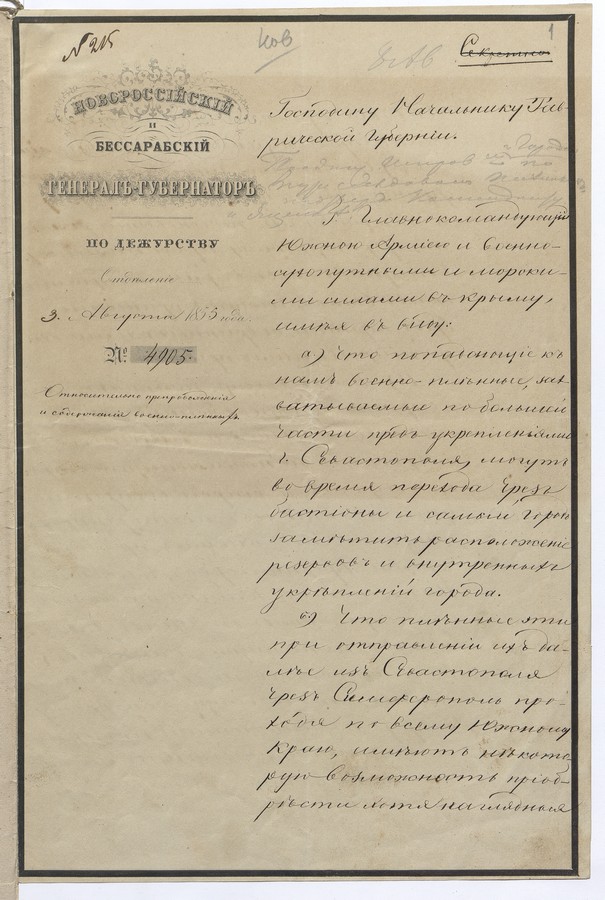 № 215
Ков
1
Секретно
НОВОРОССІЙСКІЙ
И
БЕССАРАБСКІЙ
ГЕНЕРАЛЪ-ГУБЕРНАТОРЪ
ПО ДЕЖУРСТВУ
3. Августа 1855 года.
№ 4905.
Относительно препровожденія
и содержанія военноплѣнныхъ.
Господину Начальнику Тав-
рической Губерніи.
Г. Главнокомандующій
Южною Арміею и военно-
сухопутными и морски-
ми силами въ Крыму,
имѣя въ виду:
а) Что попадающіе къ
намъ военно-плѣнные, зах-
ватываемые по большей
части предъ укрѣпленіями
г. Севастополя, могутъ
во время перехода чрезъ
бастіоны и самый городъ
замѣтить расположеніе
резервовъ и внутреннихъ
укрѣпленій города.
б) Что плѣнные эти
при отправленіи ихъ да-
лѣе изъ Севастополя
чрезъ Симферополь про-
ходя по всему Южному
Краю, имѣютъ нѣкото-
рую возможность пріоб-
рѣсти хотя наглядныя